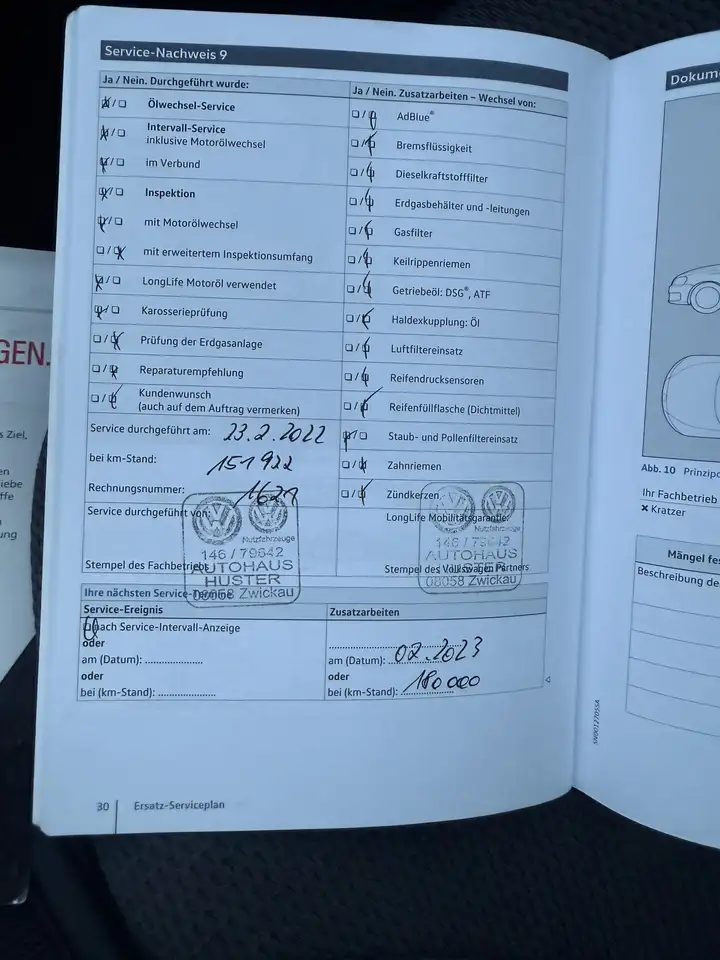 Service-Nachweis 9
Ja / Nein. Durchgeführt wurde:
Ölwechsel-Service
Intervall-Service
inklusive Motorölwechsel
im Verbund
Inspektion
mit Motorölwechsel
mit erweitertem Inspektionsumfang
LongLife Motoröl verwendet
Karosserieprüfung
Prüfung der Erdgasanlage
Reparaturempfehlung
Kundenwunsch
(auch auf dem Auftrag vermerken)
Service durchgeführt am: 23.2.2022
bei km-Stand: 151922
Rechnungsnummer:
Service durchgeführt von:
Nutzfahrzeuge
146 / 79642
AUTOHAUS
HUSTER
08058 Zwickau
Stempel des Fachbetriebs
Ja / Nein. Zusatzarbeiten – Wechsel von:
AdBlue®
Bremsflüssigkeit
Dieselkraftstofffilter
Erdgasbehälter und -leitungen
Gasfilter
Keilrippenriemen
Getriebeöl: DSG®, ATF
Haldexkupplung: Öl
Luftfiltereinsatz
Reifendrucksensoren
Reifenfüllflasche (Dichtmittel)
Staub- und Pollenfiltereinsatz
Zahnriemen
Zündkerzen
LongLife Mobilitätsgarantie:
Nutzfahrzeuge
146 / 79642
AUTOHAUS
HUSTER
08058 Zwickau
Stempel des Volkswagen Partners
Ihre nächsten Service-Termine
Service-Ereignis
nach Service-Intervall-Anzeige
oder
am (Datum):
oder
bei (km-Stand):
Zusatzarbeiten
am (Datum): 02.2023
oder
bei (km-Stand): 180000
30 Ersatz-Serviceplan
SN001270SSA
Dokum
Abb. 10 Prinzip
Ihr Fachbetrieb
× Kratzer
Mängel fes
Beschreibung de
GEN.
s Ziel,
en
iebe
ffe
ung